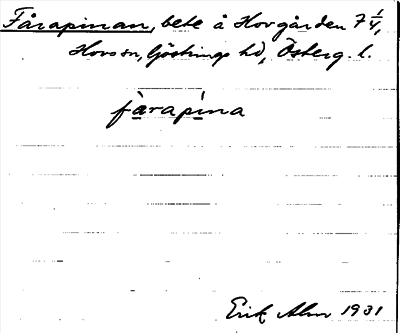 Fårapinan, bete å Horgården 7 1/4,
Hovs sn, Göstrings hd, Österg. l.
fàrapína
Erik Alm 1931